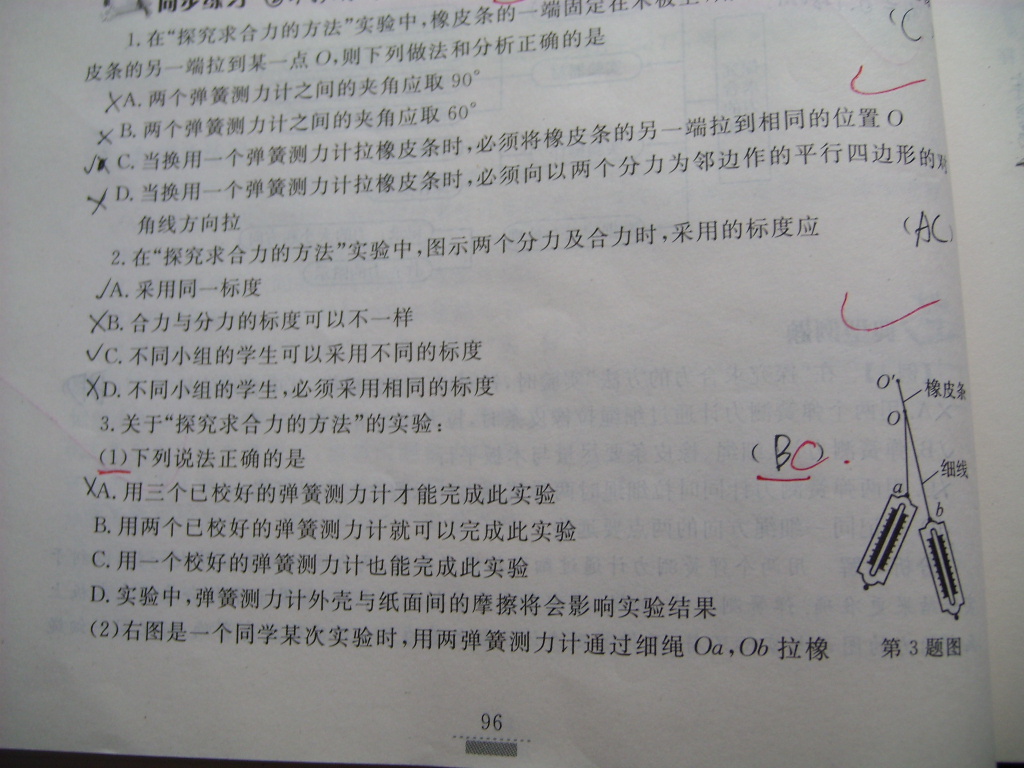 同步练习
1.在“探究求合力的方法”实验中,橡皮条的一端固定在木板上
(C
皮条的另一端拉到某一点O,则下列做法和分析正确的是
A.两个弹簧测力计之间的夹角应取90°
B.两个弹簧测力计之间的夹角应取60°
C.当换用一个弹簧测力计拉橡皮条时,必须将橡皮条的另一端拉到相同的位置O
D.当换用一个弹簧测力计拉橡皮条时,必须向以两个分力为邻边作的平行四边形的对
角线方向拉
2.在“探究求合力的方法”实验中,图示两个分力及合力时,采用的标度应
(AC)
A.采用同一标度
B.合力与分力的标度可以不一样
C.不同小组的学生可以采用不同的标度
D.不同小组的学生,必须采用相同的标度
3.关于“探究求合力的方法”的实验:
(1)下列说法正确的是
(BC).
A.用三个已校好的弹簧测力计才能完成此实验
B.用两个已校好的弹簧测力计就可以完成此实验
C.用一个校好的弹簧测力计也能完成此实验
D.实验中,弹簧测力计外壳与纸面间的摩擦将会影响实验结果
(2)右图是一个同学某次实验时,用两弹簧测力计通过细绳Oa,Ob拉橡
O′
橡皮条
O
细线
a
b
第3题图
96